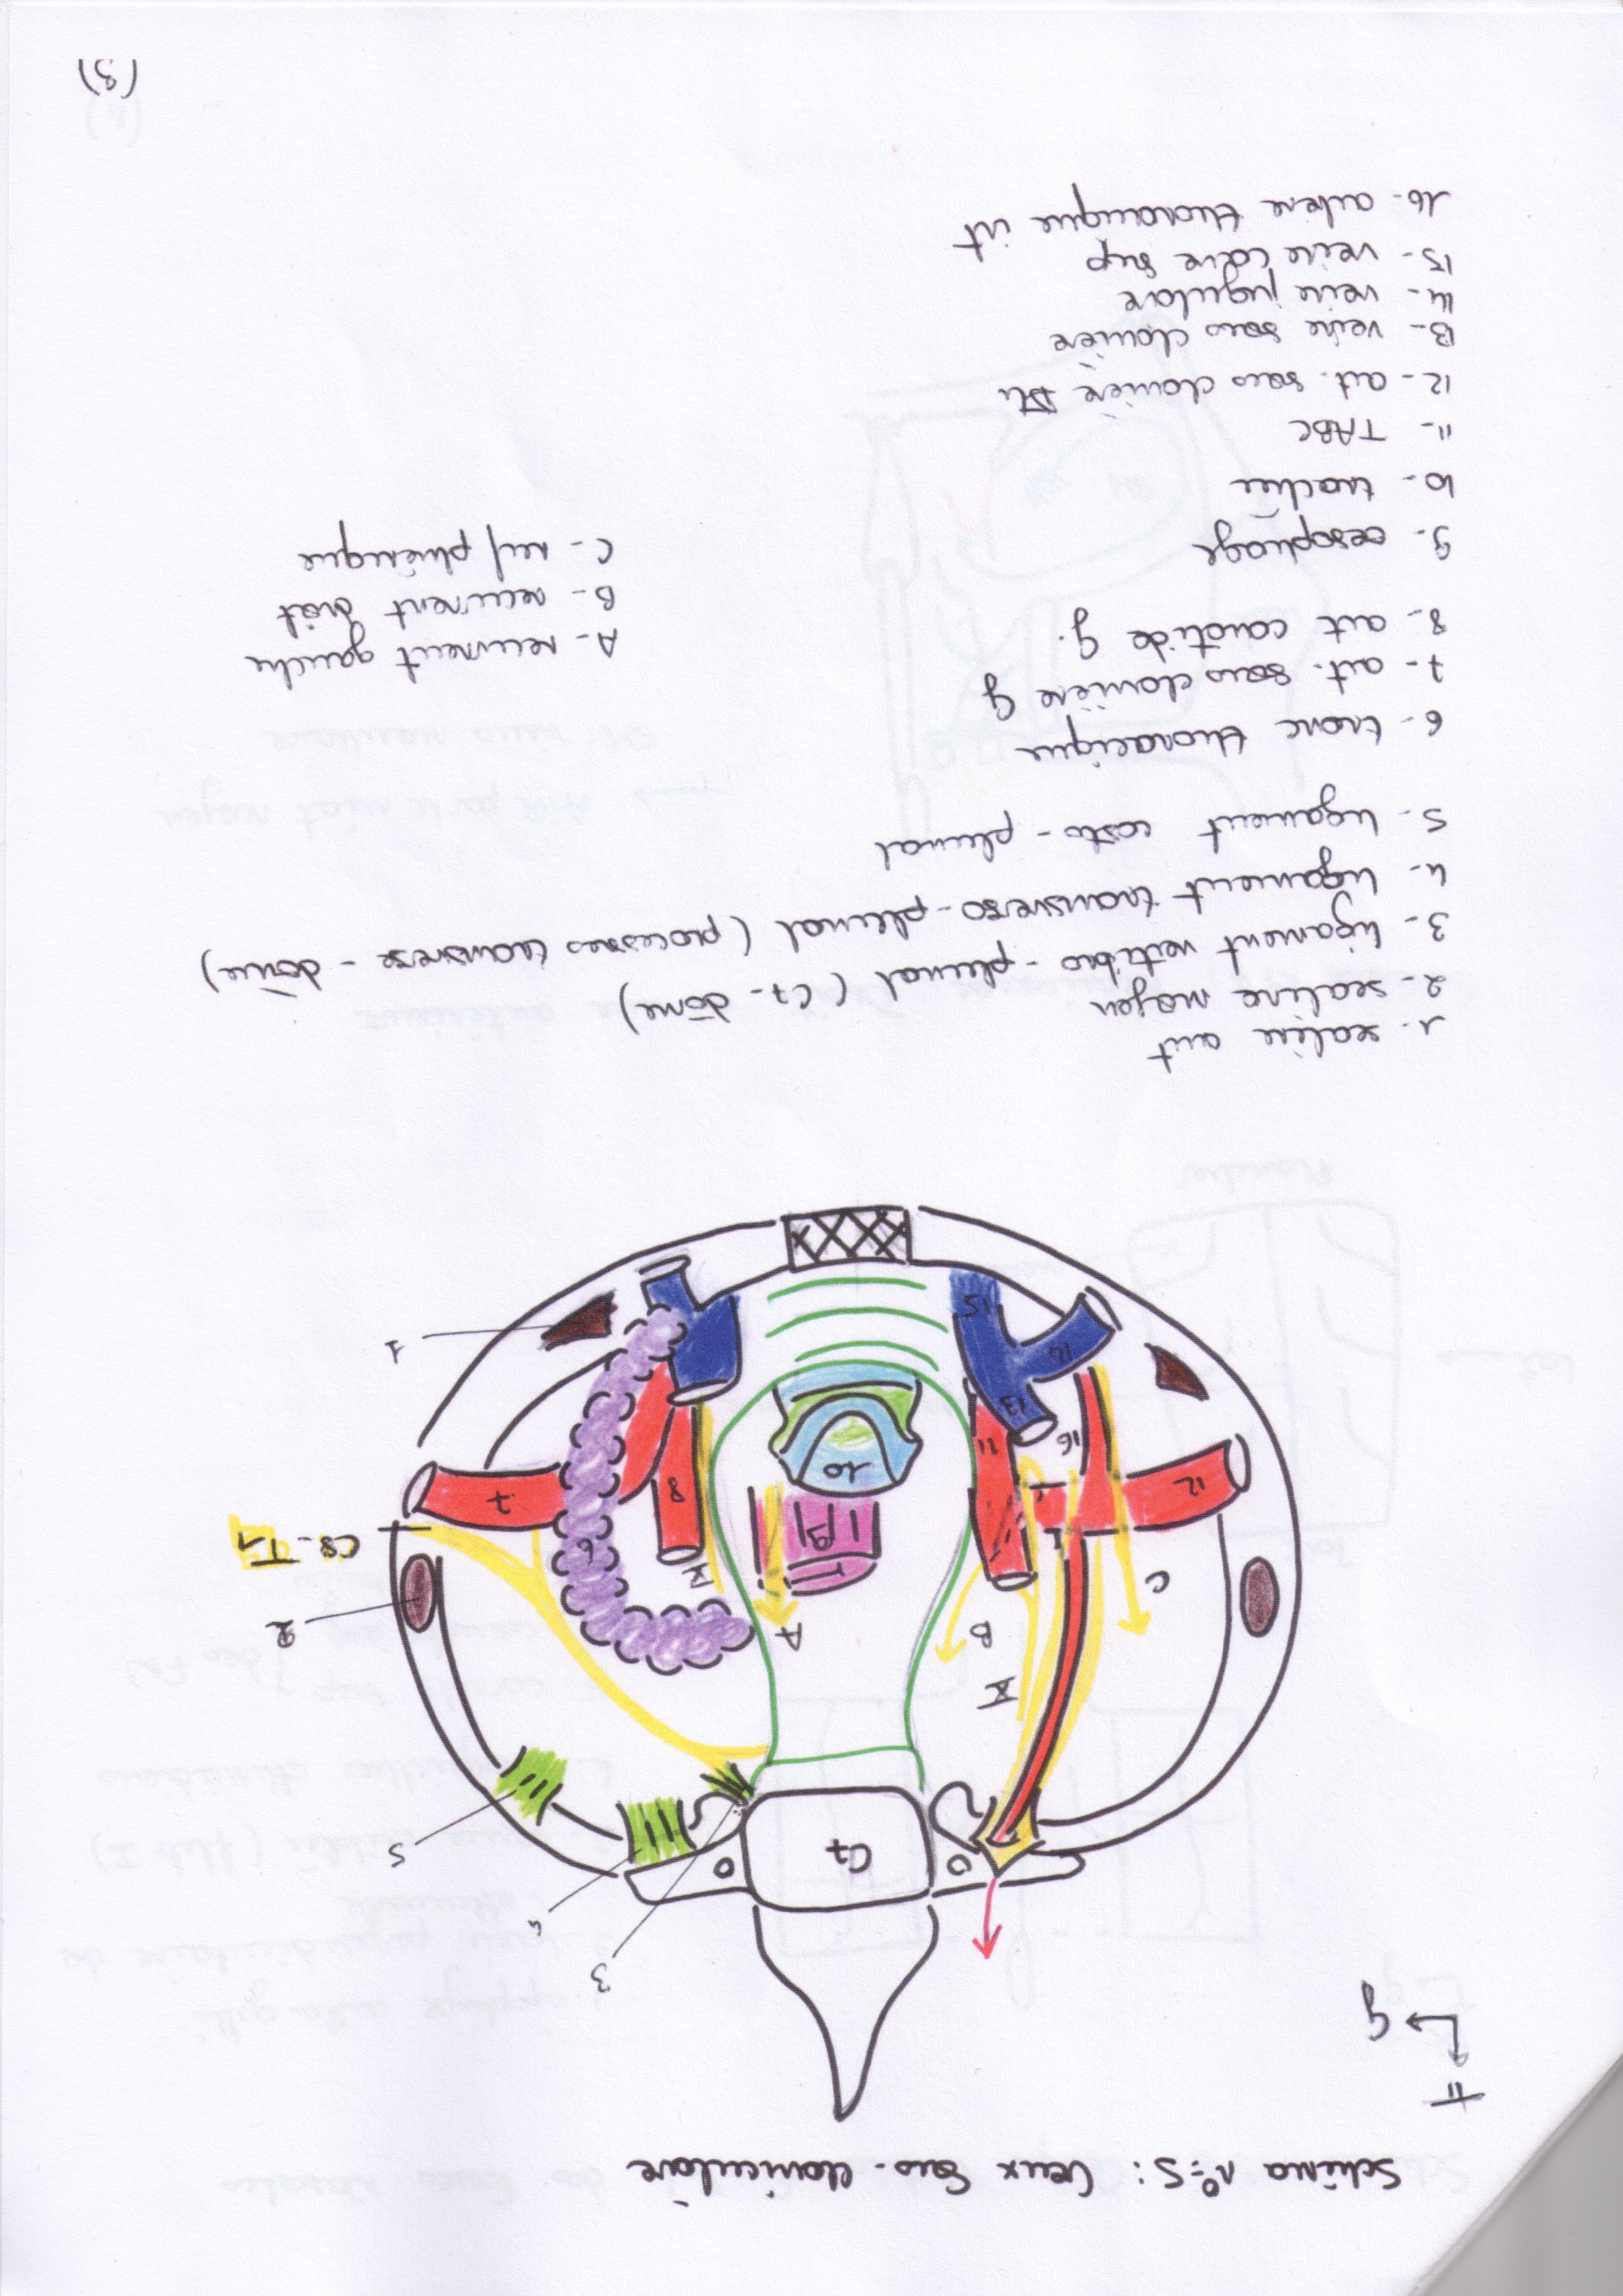 Schéma n°=5 : Creux Sous-claviculaire
g
3
4
C7
5
X
B
A
2
C
X
6
C8-T1
9
12
7
8
10
16
11
13
14
1
15
1- scalène ant
2- scalène moyen
3- ligament vertébro-pleural (C7-dôme)
4- ligament transverso-pleural (processus transverse - dôme)
5- ligament costo-pleural
6- tronc thoracique
7- art. sous clavière g
8- art carotide g.
9- oesophage
10- trachée
11- TABC
12- art. sous clavière Dte
13- veine sous clavière
14- veine jugulaire
15- veine cave sup
16- artère thoracique int
A- récurrent gauche
B- récurrent droit
C- nerf phrénique
(3)